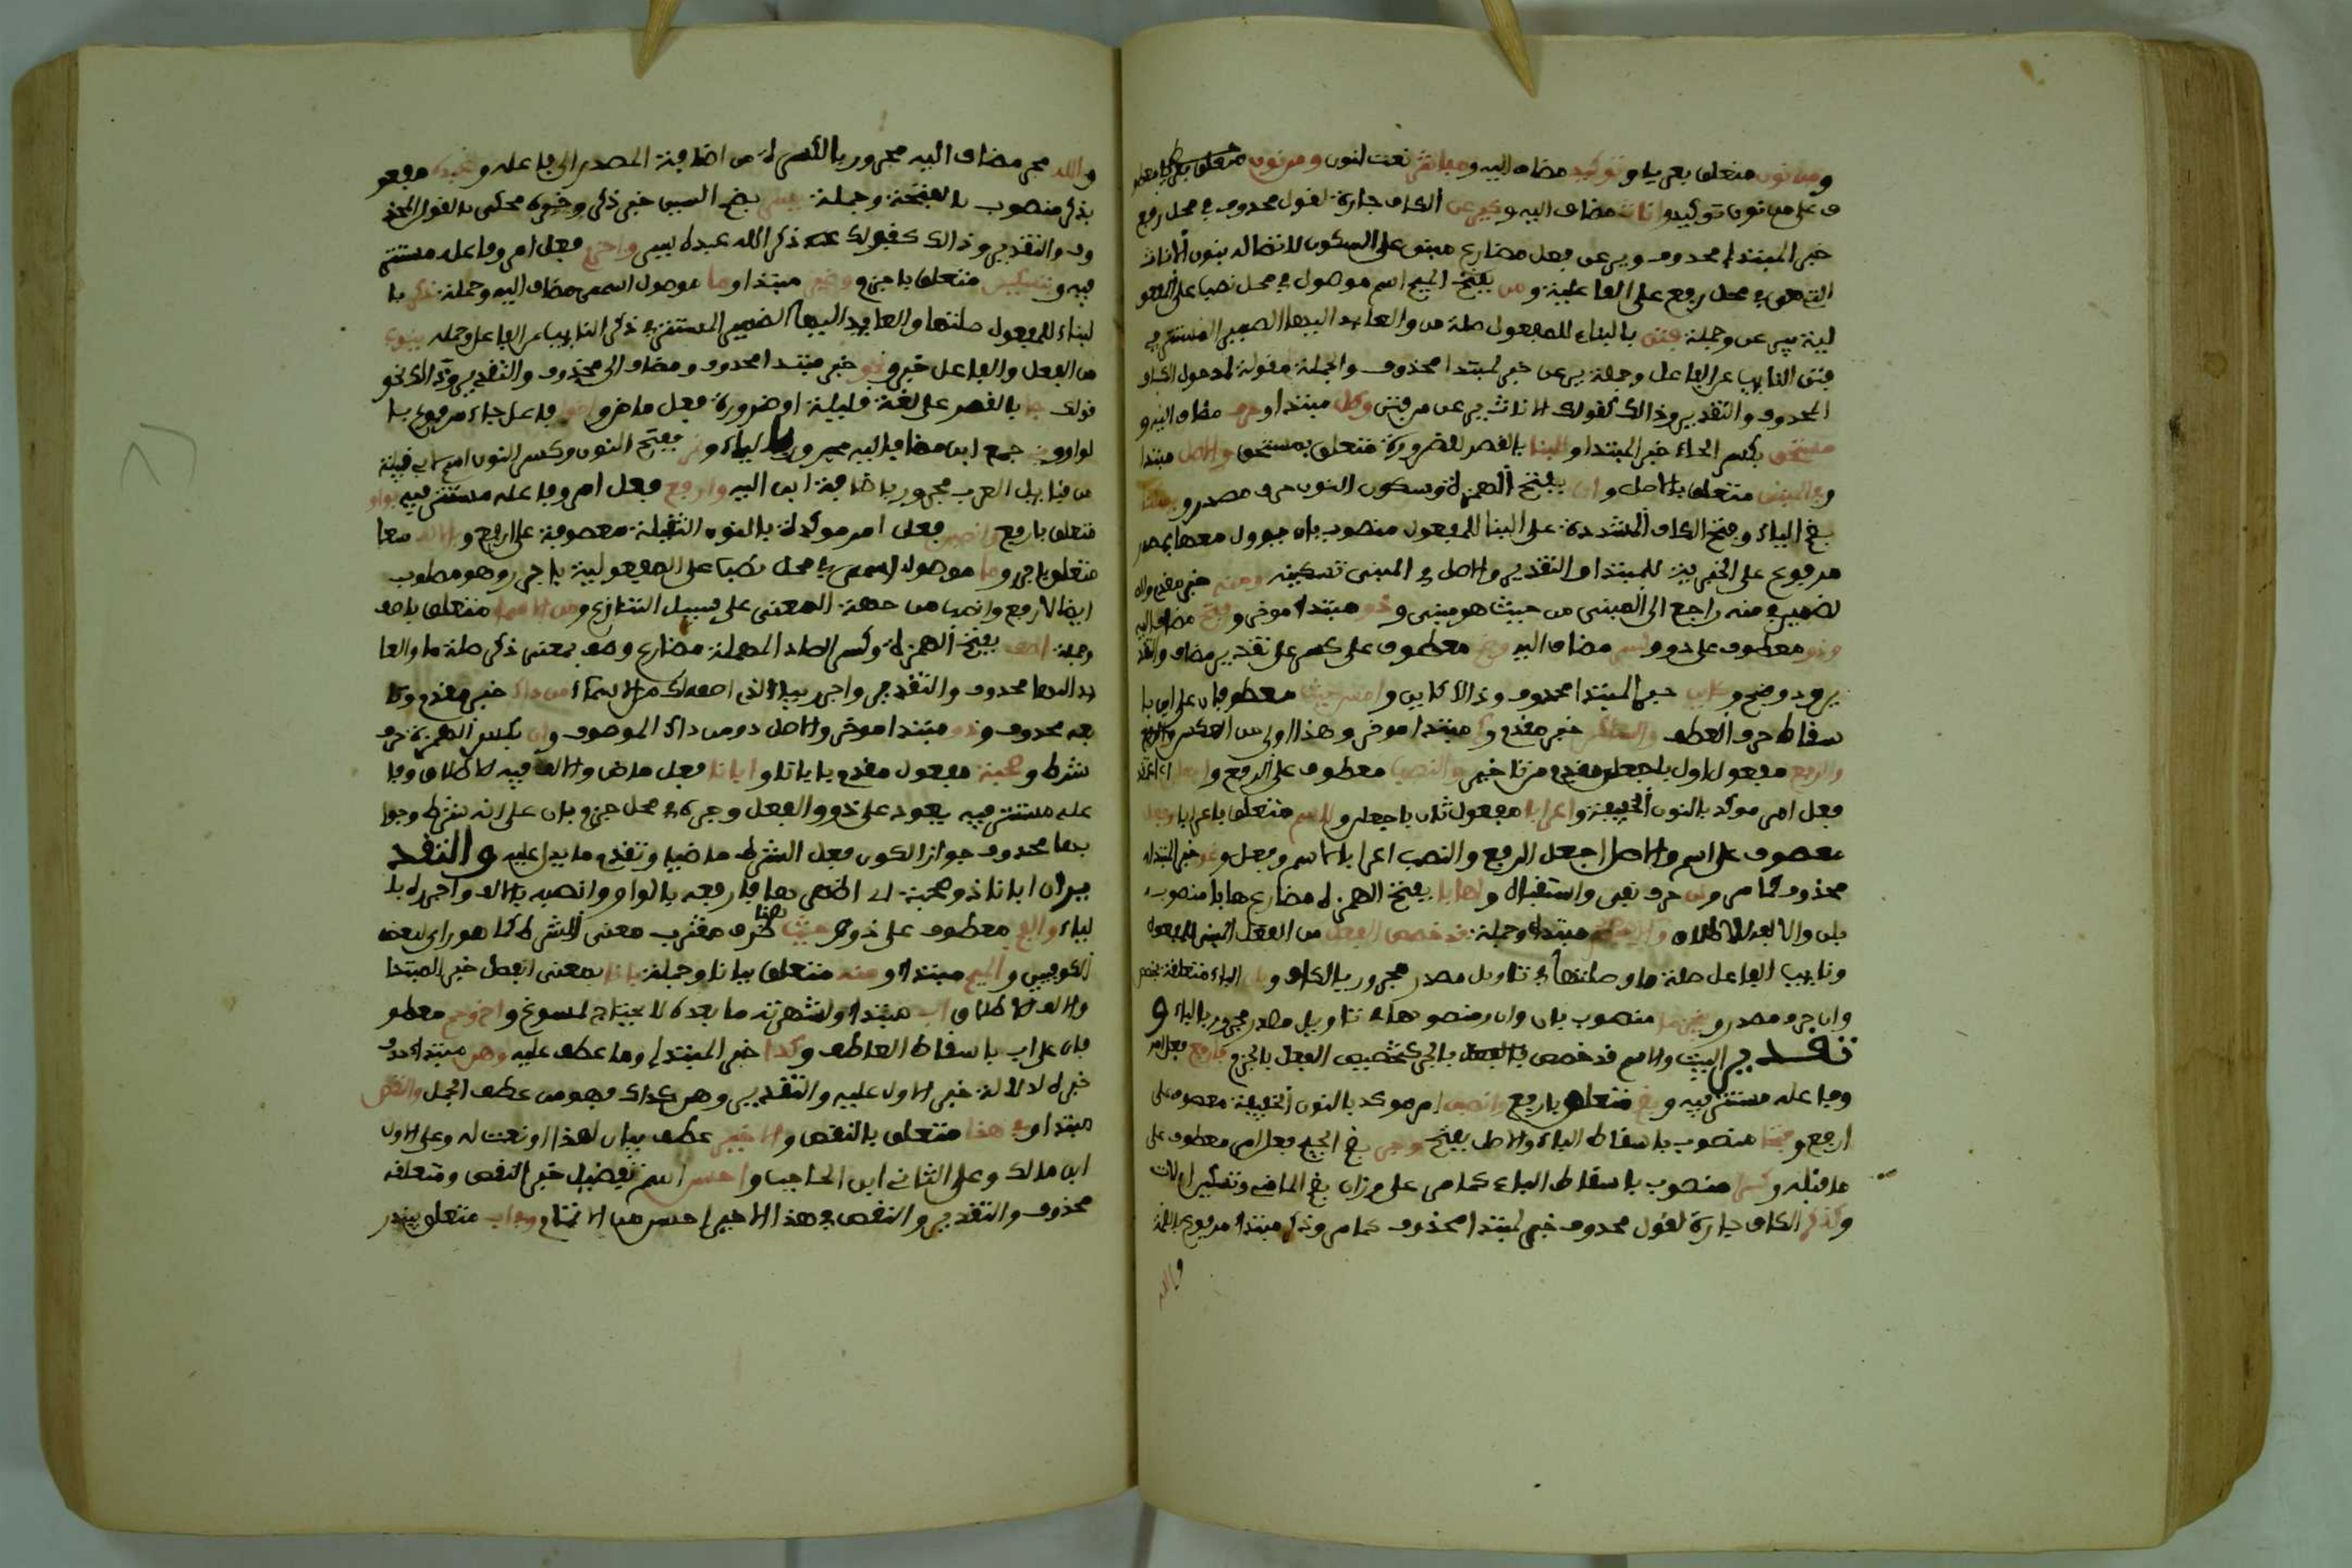 ومن نون متعلق بعريا وتوكيد مضاف اليه ومباشر نعت لنون ومن نون متعلق
ف على من نون توكيد واناث مضاف اليه وكيرعن الكاف جارة لقول محذوف في محل رفع
خبر المبتدا محذوف ويرعن فعل مضارع مبني على السكون لاتصاله بنون الاناث
التي هي في محل رفع على الفاعلية ومن بفتح الميم اسم موصول في محل نصب على المفعو
لية بيرعن وجملة فتن بالبناء للمفعول صلة من والعايد اليها الضمير المستتر في
فتن النايب عن الفاعل وجملة يرعن خبر لمبتدا محذوف والجملة مقولة لمدخول الكاف
المحذوف والتقدير وذالك كقولك الاناث يرعن من فتن وكل مبتدا وحرف مضاف اليه و
مستحق بكسر الحاء خبر المبتدا وللبنا بالقصر للضرورة متعلق بمستحق والاصل مبتدا
وفي المبني متعلق بالاصل وان بفتح الهمزة وسكون النون حرف مصدر ويسكنا
بضم الياء وفتح الكاف المشددة على البنا للمفعول منصوب بان
مرفوع على الخبرية للمبتدا والتقدير والاصل في المبني تسكينه ومنه خبر مقدم وا
لضمير في منه راجع الى المبني من حيث هو مبني وذو مبتدا موخر وفتح مضاف اليه
وذو معطوف على ذو وكسر مضاف اليه وضم معطوف على كسر على تقدير مضاف والتقد
ير وذو ضم وكاين خبر لمبتدا محذوف وذالك كاين وامس حيث معطوفان على اين با
سقاط حرف العطف والساكن خبر مقدم وكم مبتدا موخر وهذا اولى من العكس
والرفع مفعول اول باجعلن مقدم من تاخير والنصب معطوف على الرفع واجعلن
فعل امر موكد بالنون الخفيفة واعرابا مفعول ثان باجعلن ولاسم متعلق باعرابا وفعل
معطوف على اسم والاصل اجعل الرفع والنصب اعرابا لاسم وفعل ونحو خبر لمبتدا
محذوف كما مر ولن حرف نفي واستقبال واهابا بفتح الهمزة مضارع هابا منصوب
بلن والالف للاطلاق والاسم مبتدا وجملة قد خصص الفعل من الفعل المبني للمفعول
ونايب الفاعل صلة ما وصلتها في تاويل مصدر مجرور بالكاف وبان الباء متعلقة بخصص
وان حرف مصدر وينجزما منصوب بان وان ومنصوبها في تاويل مصدر مجرور بالباء و
تقدير البيت والاسم قد خصص بالجر كتخصيص الفعل بالجزم فارفع فعل امر
وفاعله مستتر فيه وبضم متعلق بارفع وانصبن امر موكد بالنون الخفيفة معطوف على
ارفع وفتحا منصوب باسقاط الباء والاصل بفتح وجر بضم الجيم فعل امر معطوف على
ما قبله وكسرا منصوب باسقاط الباء كما مر على وزان
وكذكر الكاف جارة لقول محذوف خبر لمبتدا محذوف كما مر وذكر مبتدا مرفوع
والله
والله مجر مضاف اليه مجرور بالكسرة من اضافة المصدر الى فاعله وعبده مفعو
بذكر منصوب بالفتحة وجملة يسر بضم السين خبر ذكر وخبره محكي بالقول المحذ
وف والتقدير وذالك كقولك ذكر الله عبده يسر واجزم فعل امر وفاعله مستتر
فيه وبتسكين متعلق باجزم وغير مبتدا وما موصول اسمي مضاف اليه وجملة ذكر با
لبناء للمفعول صلتها والعايد اليها الضمير المستتر في ذكر النايب عن الفاعل وجملة ينوب
من الفعل والفاعل خبره ونحو خبر مبتدا محذوف ومضاف الى محذوف والتقدير وذالك نحو
قولك جا بالقصر على لغة قليلة او ضرورة فعل ماض واخو فاعل جاء مرفوع با
لواو وبني جمع ابن مضاف اليه مجرور بالياء ونمر بفتح النون وكسر النون اسم ابي قبيلة
من قبايل العرب مجرور باضافة ابن اليه وارفع فعل امر وفاعله مستتر فيه بواو
متعلق بارفع وانصبن فعل امر موكدة بالنون الثقيلة معطوفة على ارفع وبالالف متعا
متعلق باجرر وما موصول اسمي في محل نصب على المفعولية باجرر وهو مطلوب
ايضا لارفع وانصب من جهة المعنى على سبيل التنازع ومن الاسما متعلق باصف
وجملة اصف بفتح الهمزة وكسر الصاد المهملة مضارع وصف بمعنى ذكر صلة ما والعا
يد اليها محذوف والتقدير واجرر بياء الذي اصفه لك من الاسماء من ذاك خبر مقدم
بعه محذوف وذو مبتدا موخر والاصل ذو من ذاك الموصوف وان بكسر الهمزة حرف
شرط وصحبة مفعول مقدم بابانا وابانا فعل ماض والالف فيه للاطلاق وفا
عله مستتر فيه يعود على ذو والفعل وجزه في محل جزم بان على انه شرط وجوا
بها محذوف جوازا لكون فعل الشرط ماضيا وتقدم ما يدل عليه والتقد
ير ان ابانا ذو صحبة اي اظهرها فارفعه بالواو وانصبه بالالف واجرره با
لياء والفم معطوف على ذو وحيث ظرف مضرب معنى الشرط كما هو راي بعض
الكوفيين والميم مبتدا ومنه متعلق ببانا وجملة بانا بمعنى انفصل خبر المبتدا
والالف للاطلاق اب مبتدا ولشهرته ما بعده لا يحتاج لمسوغ واخ وحم معطو
فان على اب باسقاط العاطف وكذا خبر المبتدا وما عطف عليه وهن مبتدا حذف
خبره لدلالة خبر الاول عليه والتقدير وهن كذاك فهو من عطف الجمل والنقص
مبتدا وفي هذا متعلق بالنقص والاخير عطف بيان لهذا او نعت له وعلى الاول
ابن مالك وعلى الثاني ابن الحاجب واحسن اسم تفضيل خبر النقص ومتعلقه
محذوف والتقدير والنقص في هذا الاخير احسن من الاتمام وفي اب متعلق بيندر